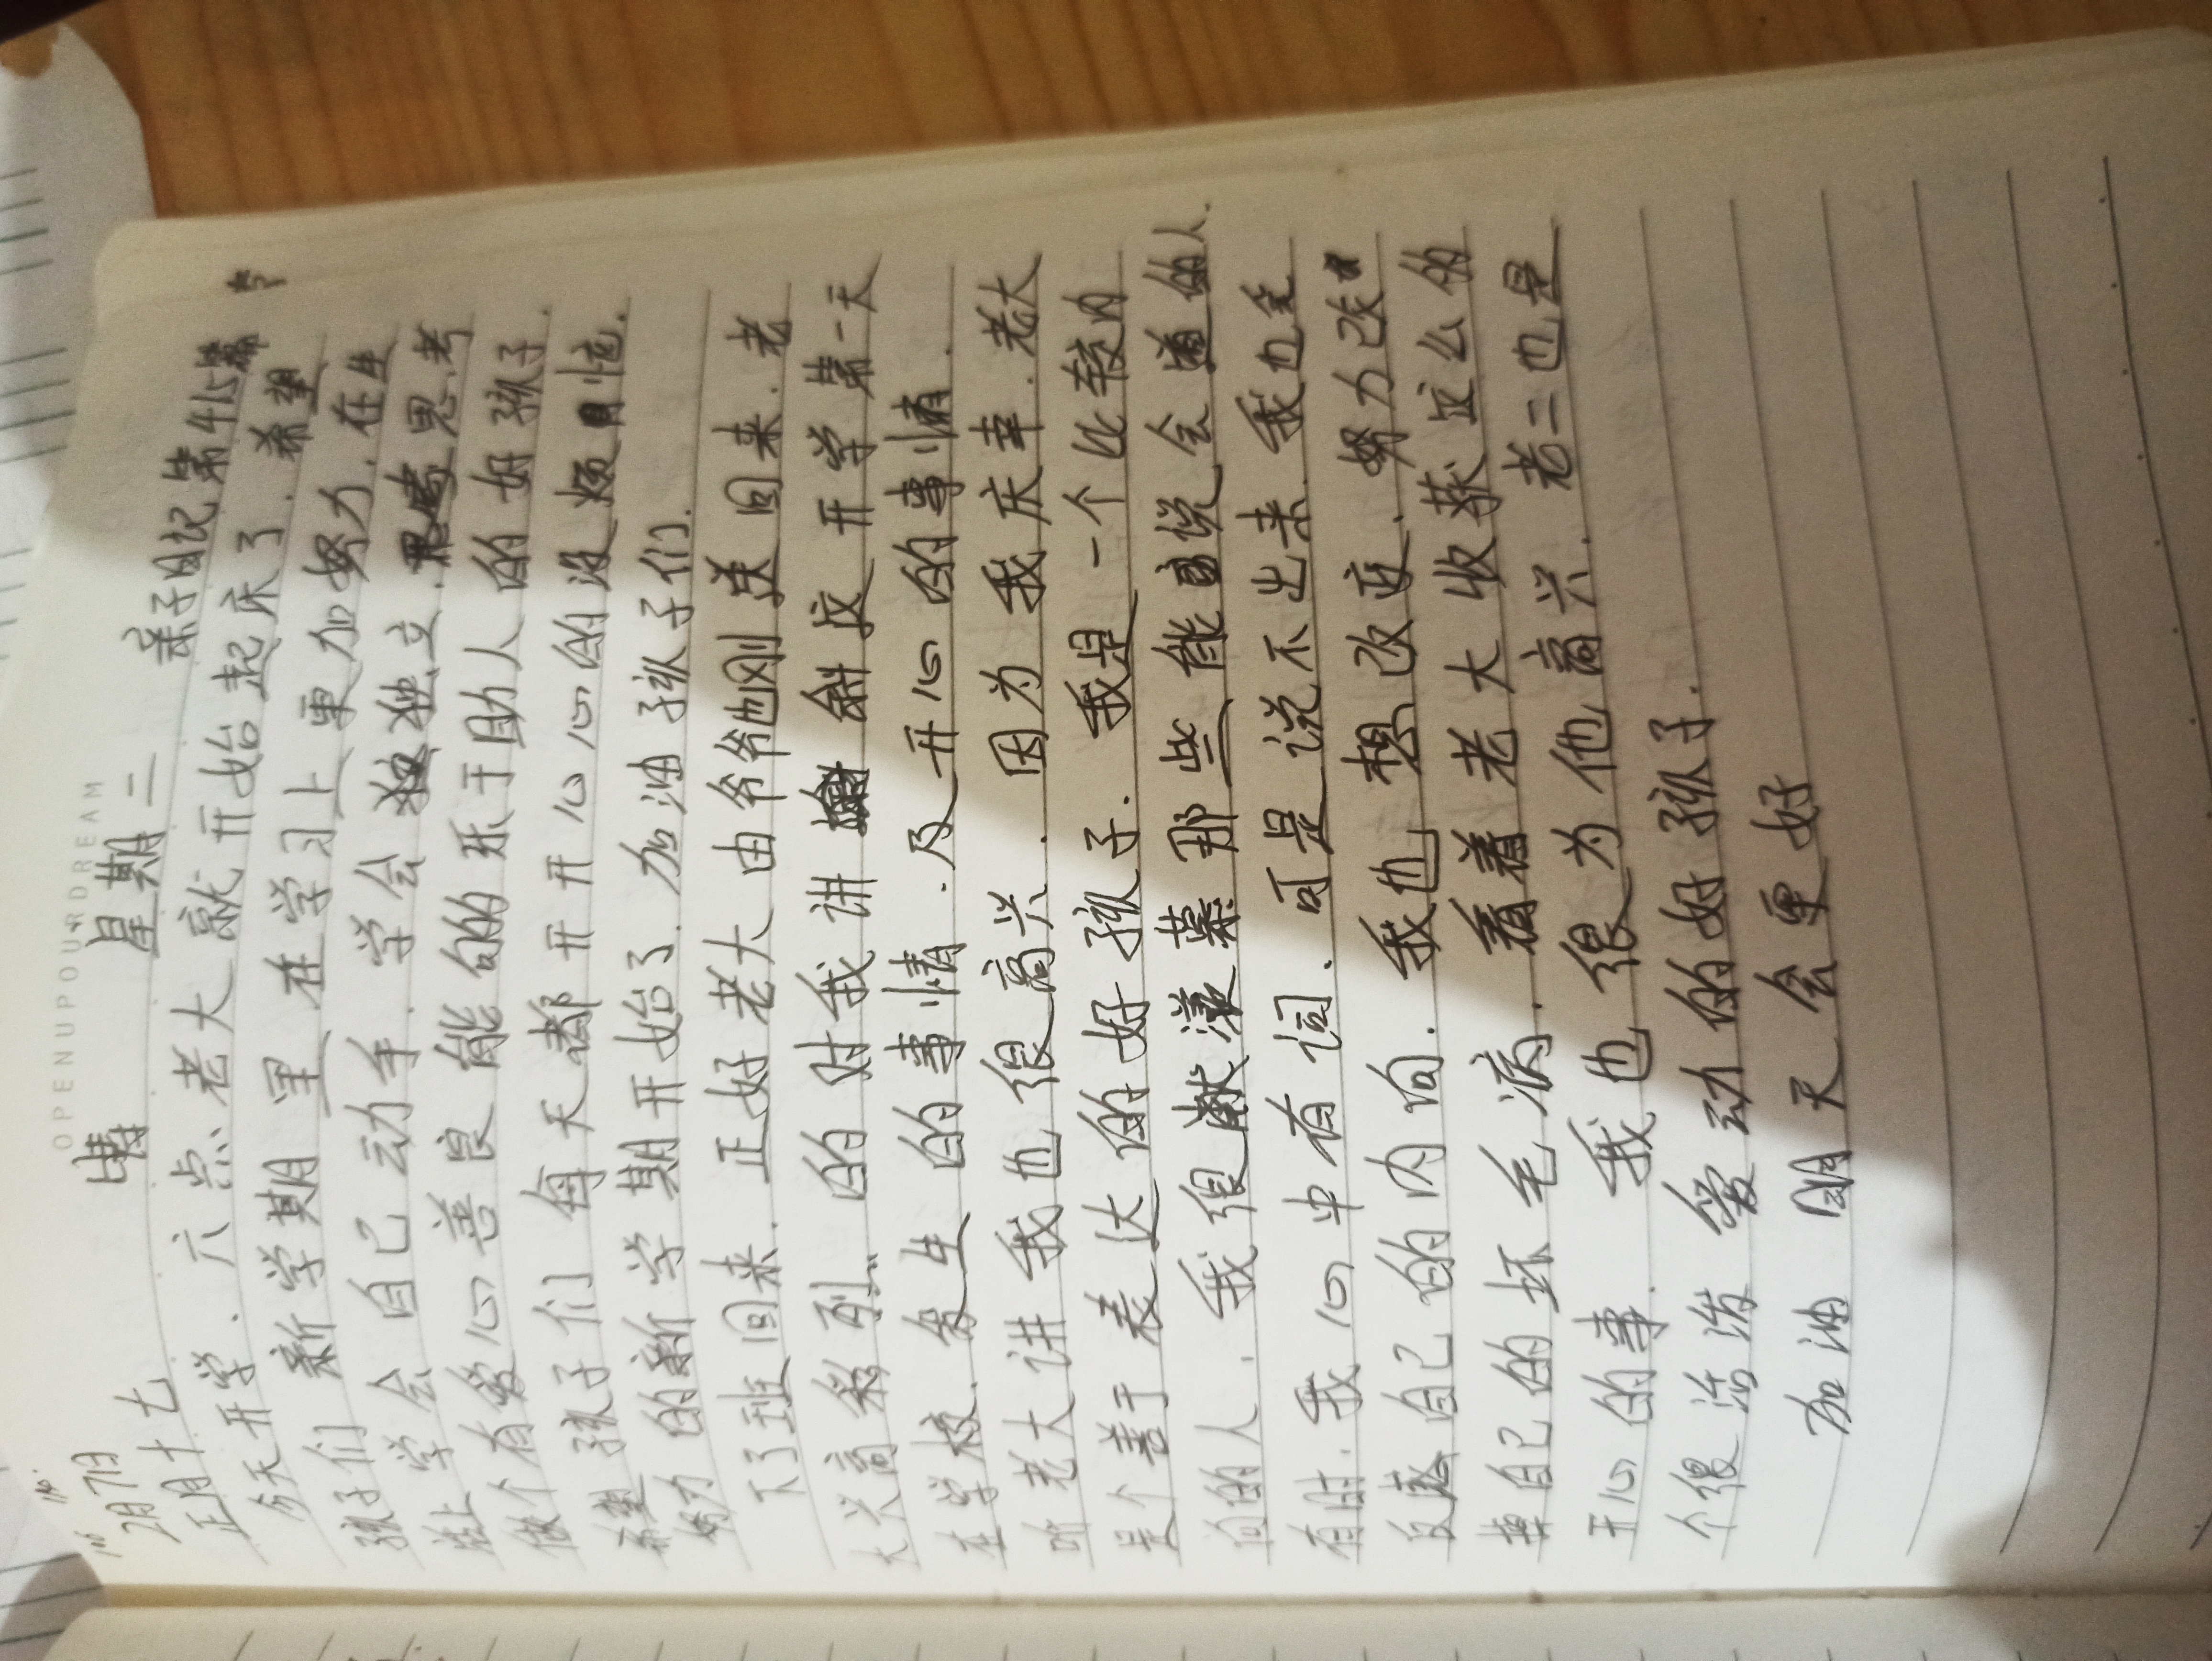 OPENUPOURDREAM
2月7日 晴 星期二
正月十七 亲子日记第415篇
今天开学.六点老大就开始起床了.希望
孩子们新学期里在学习上更加努力.在生
学会自己动手.学会独立.思考
有爱心善良能的乐于助人的好孩子.
孩子们每天都开开心心的没烦恼.
努力的新学期开始了.加油孩子们.
下了班回来.正好老大由爷爷也刚送回来.老
大兴高彩列的对我讲解放开学第一天
在学校.发生的事情.及开心的事情.
听老大讲我也很高兴.因为我庆幸.老大
是个善于表达的好孩子.我是一个比较内
向的人.我很献滚慕那些能说会道的人.
有时.我心中有词.可是说不出来.我也
反感自己的内向.我也想改变.努力改
掉自己的坏毛病.看着老大收获这么的
开心的事.我也很为他高兴.老二也是
个很活泼爱动的好孩子.
加油明天会更好